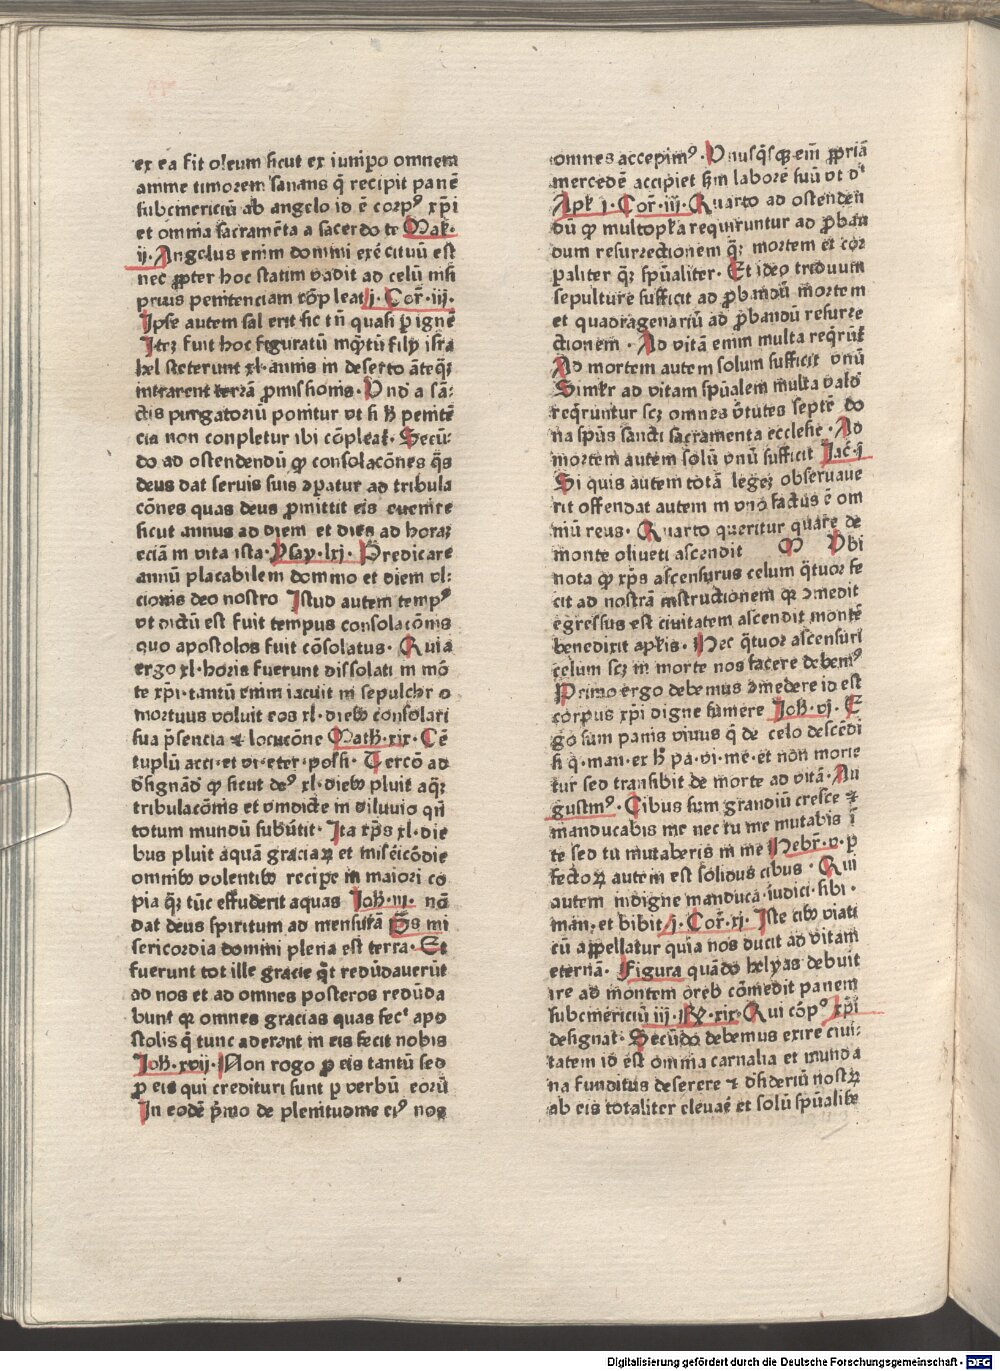 ex ea fit oleum sicut ex iunipo omnem
anime timorem sanans q̄ recipit panē
subcinericiū ab angelo id ē corpꝰ xp̄i
et omnia sacramēta a sacerdo te Mak·
ij· Angelus enim domini exēcituū est
nec ꝓpter hoc statim vadit ad celū nisi
prius penitenciam cōp leat j· Cor̄·iij·
Ipse autem sal erit sic tn̄ quasi p ignē
Iteꝫ fuit hoc figuratū inq̄tū filij isra
hel steterunt xl· annis in deserto āteqꝫ
intrarent terrā ꝓmissionis· Vnd a sā⸗
ctis purgatoriū ponitur vt si hͦ penitē
cia non conpletur ibi cōpleat̄· Secū⸗
do ad ostendendū ꝙ consolacōnes q̄s
deus dat seruis suis ↄpatur ad tribula
cōnes quas deus ꝓmittit eis euenire
sicut annus ad diem et dies ad horaꝫ
eciā in vita ista· Ysay·lxj· Predicare
annū placabilem domino et diem vl⸗
cionis deo nostro Istud autem tempꝰ
vt dictū est fuit tempus consolacōnis
quo apostolos fuit cōsolatus· Quia
ergo xl· horis fuerunt dissolati in mō
te xp̄i· tantū enim iacuit in sepulchr o
mortuus voluit eos xl· diebꝰ consolari
sua p̄sencia ⁊ locucōne Math·xix· Cē
tuplū acci· et vi· eter· possi· Tercō ad
dſignādū ꝙ sicut deꝰ xl· diebꝰ pluit aq̄ꝫ
tribulacōnis et vindicte in diluuio qn̄
totum mundū subūtit· Ita xp̄s xl· die
bus pluit aquā graciaꝝ et mīsēicōdie
omnibꝰ volentibꝰ recipe in maiori co
pia q̄ꝫ tūc effuderit aquas Joh̄·iij· nō
dat deus spiritum ad mensurā p̄s mi
sericordia domini plena est terra· Et
fuerunt tot ille gracie q̄t redūdauerūt
ad nos et ad omnes posteros redūda
bunt qꝫ omnes gracias quas fec̄ apo
stolis q̄ tunc aderant in eis fecit nobis
Joh̄·xvij· Non rogo ꝓ eis tantū sed
ꝓ eis qui credituri sunt p verbū eorū
In eodē p̄mo de plenitudine eiꝰ nos
omnes accepimꝰ· Vnusq̄sqꝫ em̄ ꝓpriā
mercedē accipiet ẜm laborē suū vt dͥ
Apk̄ j· Cor̄·iij· Quarto ad ostenden
dū ꝙ multoplr̄a requiruntur ad ꝓban
dum resurrectionem q̄ꝫ mortem et cor
paliter q̄ꝫ spūaliter· Et ideo triduum
sepulture sufficit ad ꝓbandū mortem
et quadragenariū ad ꝓbandū resurre
ctionem · Ad vitā enim multa req̄rūt̄
Ad mortem autem solum sufficit vnū
Similr̄ ad vitam spūalem multa valdͦ
req̄runtur scꝫ omnes v̄tutes septē do
na spūs sancti sacramenta ecclesie· Ad
mortem autem solū vnū sufficit Jac̄·ij
Si quis autem totā legeꝫ obseruaue
rit offendat autem in vno factus ē om
niū reus· Quarto queritur quare de
monte oliueti ascendit M Vbi
nota ꝙ xp̄s ascensurus celum q̄tuor fe
cit ad nostrā instructionem qꝛ ↄmedit
egressus est ciuitatem ascendit montē
benedixit apk̄is· Hec q̄tuor ascensuri
celum scꝫ in morte nos facere debemꝰ
Primo ergo debemus ↄmedere id est
corpus xp̄i digne sumere Joh̄·vj· E
go sum panis viuus q̄ de celo descēdi
si q̄·man·ex hͦ pa·vi·me·et non morie
tur sed transibit de morte ad vitā· Au
gustinꝰ· Cibus sum grandiū cresce ⁊
manducabis me nec tu me mutabis ī
te sed tu mutaberis in me Hebr̄·v·p
fectoꝝ autem est solidus cibus · Qui
autem indigne manduca·iudici·sibi·
man·et bibit j· Cor̄·xj· Iste cibꝰ viati
cū appellatur quia nos ducit ad vitam
eternā· Figura quādo helyas debuit
ire ad montem oreb cōmedit panem
subcinericiū iij· Rꝭ·xix· Qui cōpꝰ xp̄i
designat· Secūdo debemus exire ciui⸗
tatem id est omnia carnalia et munda
na funditus deserere ⁊ dſideriū nostꝝ
ab eis totaliter eleuare et solū spūalibꝰ
Digitalisierung gefördert durch die Deutsche Forschungsgemeinschaft - DFG